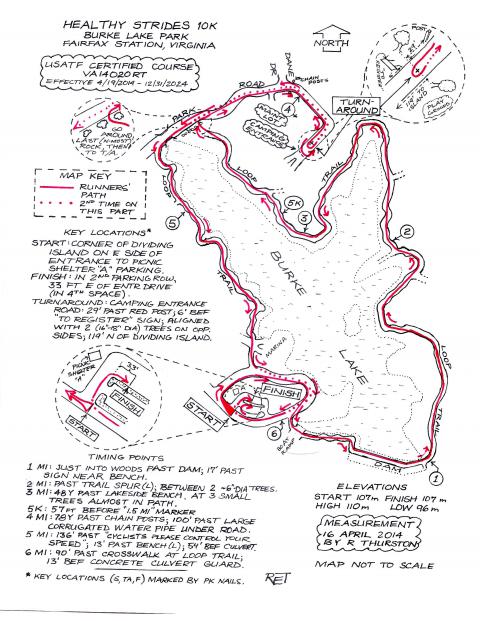 HEALTHY STRIDES 10K
BURKE LAKE PARK
FAIRFAX STATION, VIRGINIA
USATF CERTIFIED COURSE
VA14020RT
EFFECTIVE 4/19/2014 - 12/31/2024
NORTH
DANE
DR
CHAIN
POSTS
PARK
ROAD
4
MAINT
LOT
CAMPING
ENTRANCE
TURN-
AROUND
29'
114' TO
ISLAND
PLAY
GROUND
GO
AROUND
LAST (N-MOST)
ROCK, THEN
TO T/A
MAP KEY
RUNNERS'
PATH
2ND TIME ON
THIS PART
LOOP
TRAIL
5K
3
TRAIL
2
5
LOOP
TRAIL
BURKE
LAKE
LOOP
TRAIL
KEY LOCATIONS*
START: CORNER OF DIVIDING
ISLAND ON E SIDE OF
ENTRANCE TO PICNIC
SHELTER "A" PARKING.
FINISH: IN 2ND PARKING ROW,
33 FT E OF ENTR DRIVE
(IN 4TH SPACE).
TURNAROUND: CAMPING ENTRANCE
ROAD: 29' PAST RED POST; 6' BEF
"TO REGISTER" SIGN; ALIGNED
WITH 2 (16"-18" DIA) TREES ON OPP.
SIDES; 114' N OF DIVIDING ISLAND.
MARINA
FINISH
START
6
BOAT
RAMP
DAM
1
PICNIC
SHELTER
"A"
33'
FINISH
START
TIMING POINTS
1 MI: JUST INTO WOODS PAST DAM; 17' PAST
SIGN NEAR BENCH.
2 MI: PAST TRAIL SPUR (L); BETWEEN 2 ~6" DIA TREES.
3 MI: 48Y PAST LAKESIDE BENCH, AT 3 SMALL
TREES ALMOST IN PATH.
5K: 57 FT BEFORE "1.5 MI" MARKER
4 MI: 78Y PAST CHAIN POSTS; 100' PAST LARGE
CORRUGATED WATER PIPE UNDER ROAD.
5 MI: 136' PAST "CYCLISTS PLEASE CONTROL YOUR
SPEED"; 13' PAST BENCH (L); 54' BEF CULVERT.
6 MI: 90' PAST CROSSWALK AT LOOP TRAIL;
13' BEF CONCRETE CULVERT GUARD.
* KEY LOCATIONS (S, TA, F) MARKED BY PK NAILS.
RET
ELEVATIONS
START 107m FINISH 107m
HIGH 110m LOW 96m
MEASUREMENT
16 APRIL 2014
BY R THURSTON
MAP NOT TO SCALE